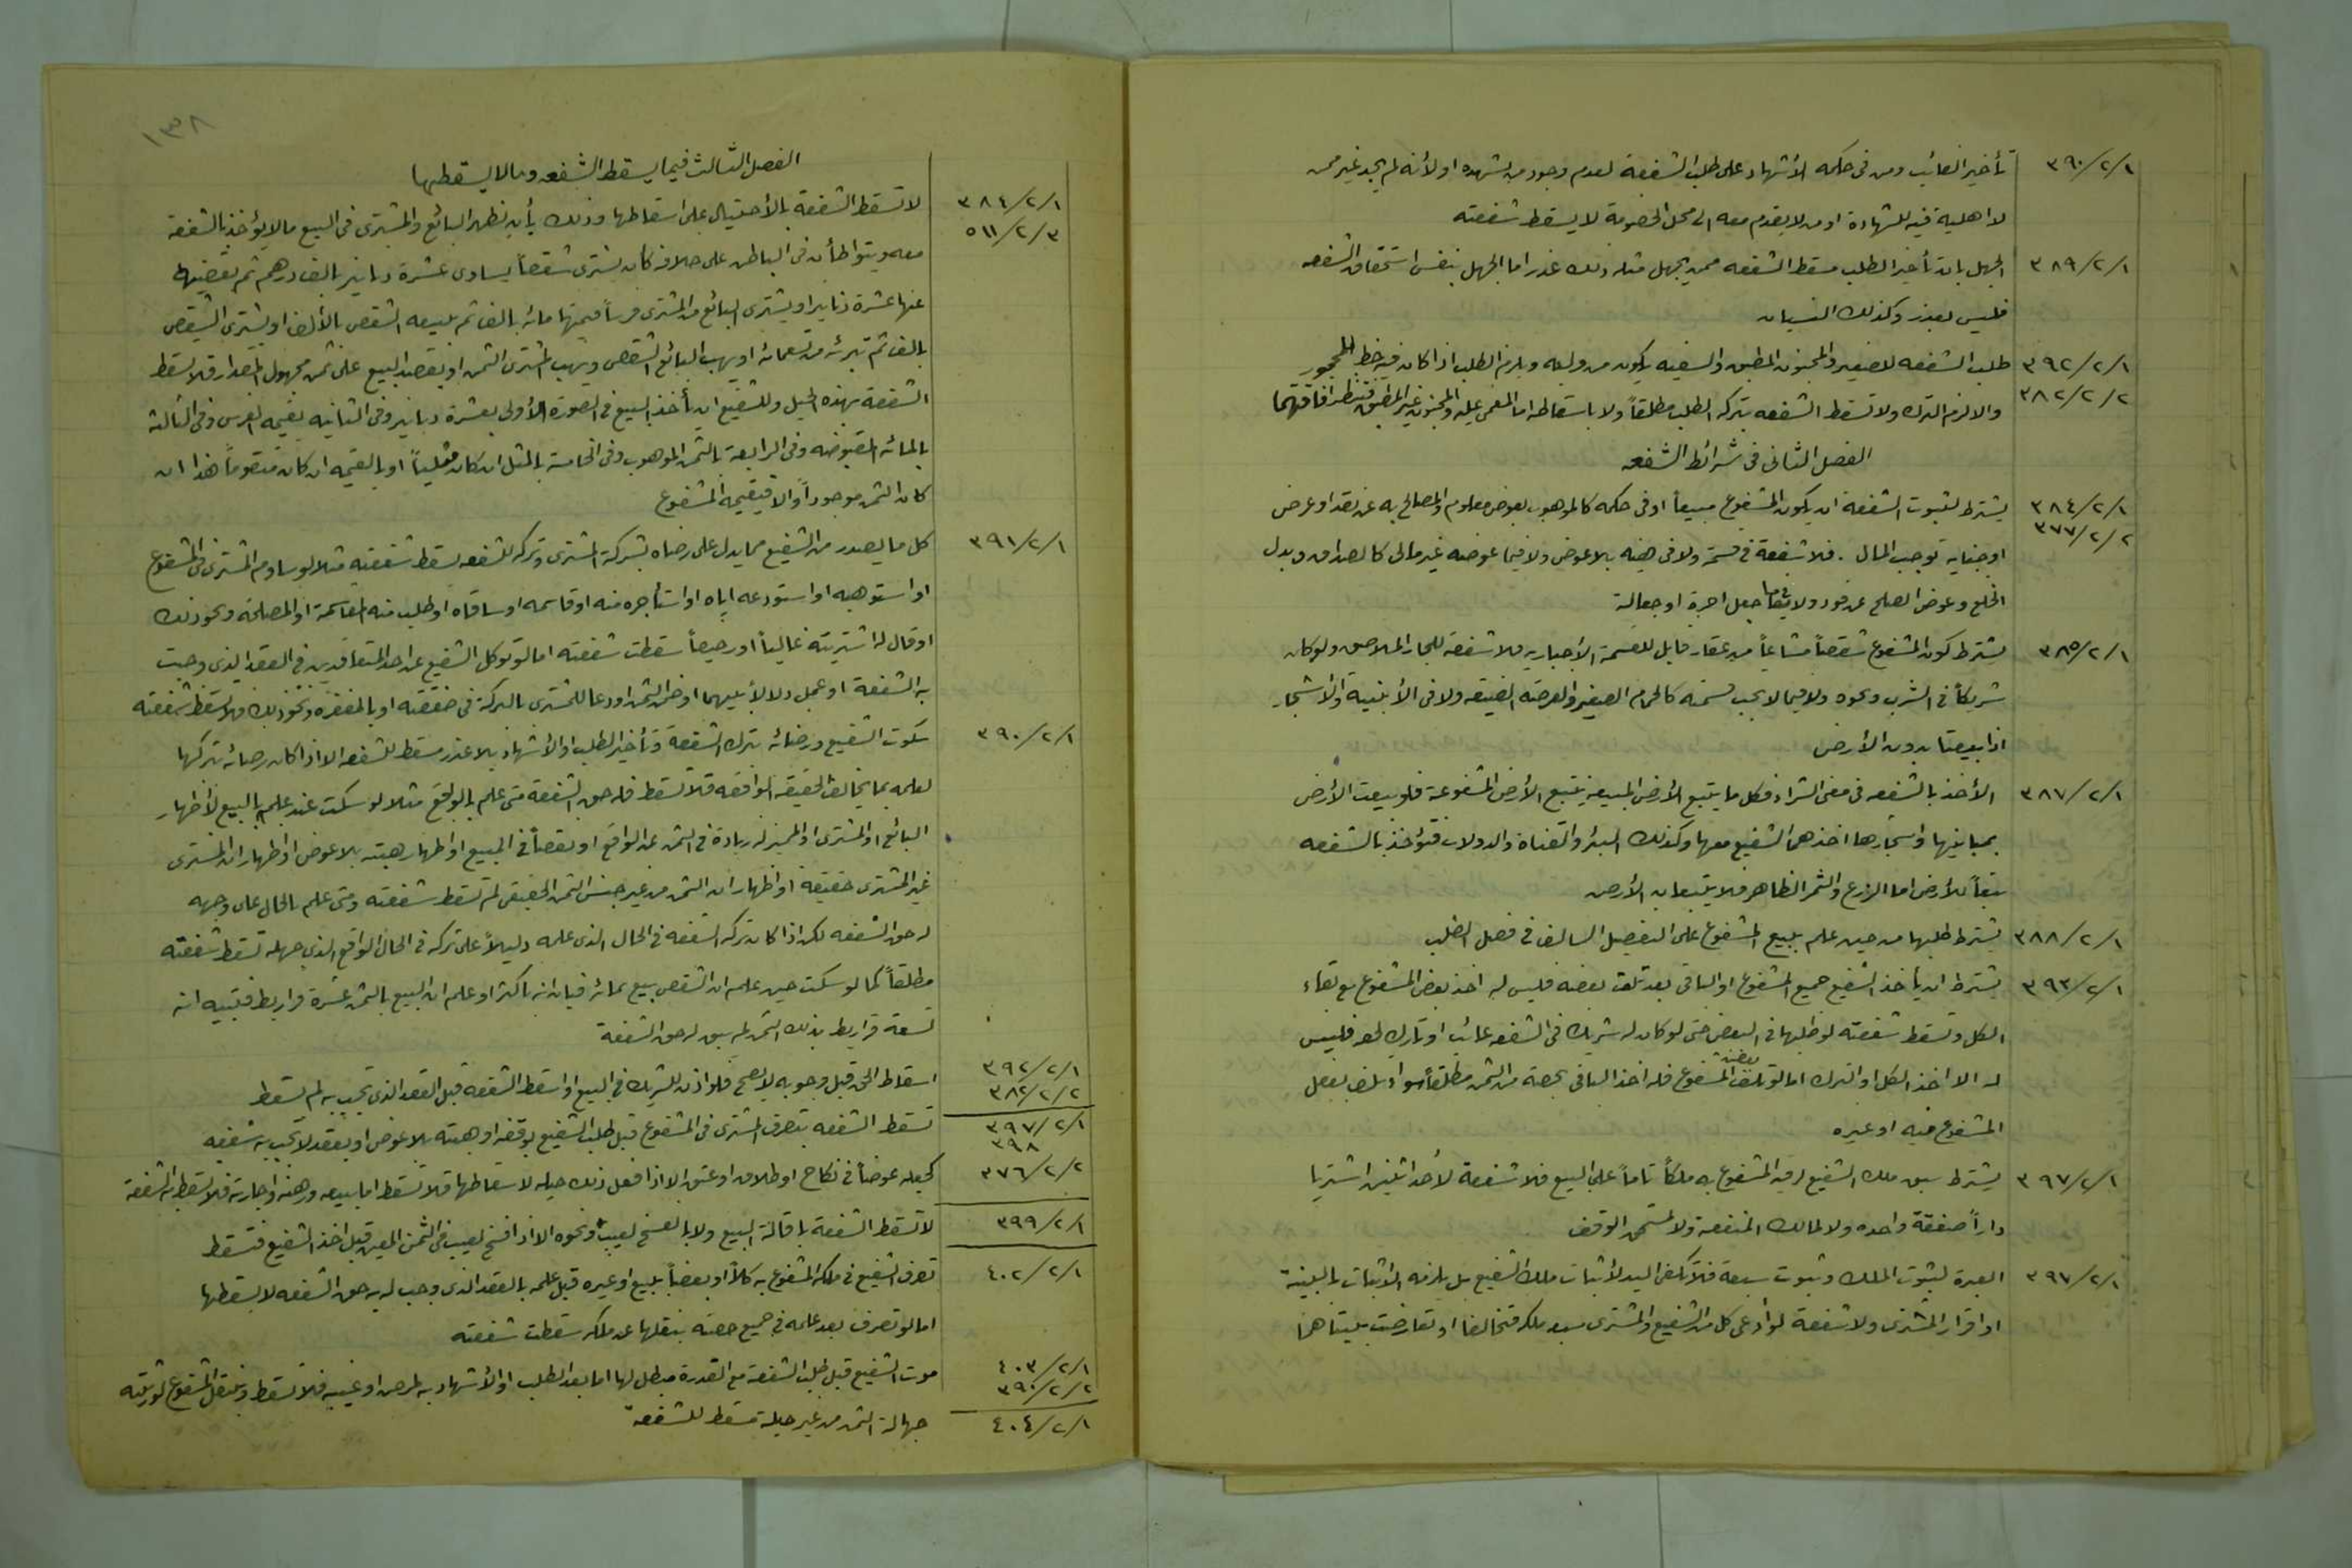 ٣٩٠/٢/١ تأخير الغائب ومن في حكمه الأشهاد على طلب الشفعة لعدم وجود من يشهده او لأنه لم يجد غير من
لا اهلية فيه للشهادة او من لا يقدم معه الى محل الخصومة لا يسقط شفعته
٣٨٩/٢/١ الجهل بان تأخير الطلب مسقط الشفعه ممن يجهل مثله ذلك عذر اما الجهل بنفس استحقاق الشفعه
فليس بعذر وكذلك النسيان
٣٩٢/٢/١ طلب الشفعه للصغير والمجنون المطبق والسفيه يكون من وليه ويلزم الطلب اذا كان فيه حظ للمحجور
٣٨٢/٢/٢ والا لزم الترك ولا تسقط الشفعه بتركه الطلب مطلقاً ولا باسقاطه اما المغمى عليه والمجنون غير المطبق فتنظر افاقتهما
الفصل الثاني في شرائط الشفعه
٣٨٤/٢/١ يشترط لثبوت الشفعة ان يكون المشفوع مبيعاً او في حكمه كالموهوب بعوض معلوم والمصالح به عن نقد او عرض
٣٧٧/٢/٢ او جنايه توجب المال . فلا شفعة في قسمة ولا في هبه بلا عوض ولا فيما عوضه غير مالي كالصداق وبدل
الخلع وعوض الصلح عن قود ولا فيما جعل اجرة او جعالة
٣٨٥/٢/١ يشترط كون المشفوع شقصاً مشاعاً من عقار قابل للقسمة الأجباريه فلا شفعة للجار الملاصق ولو كان
شريكاً في الشرب ونحوه ولا فيما لا يجب قسمته كالحمام الصغير والعرصه الضيقه ولا في الأبنية والأشجار
اذا بيعتا بدون الأرض
٣٨٧/٢/١ الأخذ بالشفعه في معنى الشراء فكل ما يتبع الأرض المبيعه يتبع الأرض المشفوعة فلو بيعت الأرض
بمبانيها واشجارها اخذهما الشفيع معها وكذلك البئر والقناة والدولاب فتؤخذ بالشفعه
تبعاً للأرض اما الزرع والثمر الظاهر فلا يتبعان الأرض
٣٨٨/٢/١ يشترط طلبها من حين علم ببيع المشفوع على التفصيل السالف في فصل الطلب
٣٩٣/٢/١ يشترط ان يأخذ الشفيع جميع المشفوع او الباقي بعد تلف بعضه فليس له اخذ بعض المشفوع مع بقاء
الكل وتسقط شفعته لو طلبها في البعض حتى لو كان له شريك في الشفعه غائب او تارك لحقه فليس
له الا اخذ الكل او الترك اما لو تلف بعض المشفوع فله اخذ الباقي بحصته من الثمن مطلقاً سواء تلف بفعل
المشفوع فيه او غيره
٣٩٧/٢/١ يشترط سبق ملك الشفيع لرقبة المشفوع به ملكاً تاماً على البيع فلا شفعة لأحد اثنين اشتريا
داراً صفقة واحده ولا لمالك المنفعة ولا لمستحق الوقف
٣٩٧/٢/١ العبرة لثبوت الملك وثبوت سبقه فلا تكفي اليد لأثبات ملك الشفيع بل يلزمه الاثبات بالبينة
او اقرار المشترى ولا شفعة لو ادعى كل من الشفيع والمشترى سبق ملكه فتحالفا او تعارضت بينتاهما
١٣٨
الفصل الثالث فيما يسقط الشفعه وما لا يسقطها
٣٨٤/٢/١ لا تسقط الشفعة بالأحتيال على اسقاطها وذلك بأن يظهر البائع والمشترى في البيع ما لا يؤخذ بالشفعة
٥١١/٢/٣ معه ويتواطأن في الباطن على خلافه كأن يشترى شقصاً يساوى عشرة دنانير بالف درهم ثم يقضيه
عنها عشرة دنانير او يشترى البائع من المشترى فرساً قيمتها مائه بالف ثم يبيعه الشقص بالألف او يشترى الشقص
بالف ثم تبرئه من تسعمائه او يهب البائع الشقص ويهب المشترى الثمن او يقصد البيع على ثمن مجهول المقدار فلا تسقط
الشفعة بهذه الحيل وللشفيع ان يأخذ المبيع في الصورة الأولى بعشرة دنانير وفي الثانيه بقيمه الفرس وفي الثالثة
بالمائه المقبوضه وفي الرابعة بالثمن الموهوب وفي الخامسة بالمثل ان كان مثلياً او بالقيمه ان كان متقوماً هذا ان
كان الثمن موجوداً والا فبقيمة المشفوع
٣٩١/٢/١ كل ما يصدر من الشفيع مما يدل على رضاه بشركة المشترى وتركه للشفعه يسقط شفعته مثلا لو ساوم المشترى في المشفوع
او استوهبه او استودعه اياه او استأجره منه او قاسمه او ساقاه او طلب منه المقاسمة او المصالحه ونحو ذلك
او قال له اشتريته غالياً او رخيصاً سقطت شفعته اما لو توكل الشفيع عن احد المتعاقدين في العقد الذي وجبت
به الشفعة او عمل دلالاً بينهما او ضمن الثمن او دعا للمشترى بالبركة في صفقته او بالمغفره ونحو ذلك فلا تسقط شفعته
٣٩٠/٢/١ سكوت الشفيع ورضائه بترك الشفعة وتأخير الطلب او الأشهاد بلا عذر مسقط للشفعه الا اذا كان رضائه بتركها
لعلمه بما يخالف الحقيقه الواقعه فلا تسقط فله حق الشفعة متى علم بالواقع مثلا لو سكت عند علمه بالبيع لأظهار
البائع او المشترى او المخبر له زيادة في الثمن عن الواقع او نقصاً في المبيع او اظهار هبته بلا عوض او اظهار ان المشترى
غير المشترى حقيقة او اظهار ان الثمن من غير جنس الثمن الحقيقي لم تسقط شفعته ومتى علم بالحال على وجهه
له حق الشفعه لكن اذا كان تركه الشفعه في الحال الذي علمه دليلاً على تركه في الحال الواقع الذي جهله تسقط شفعته
مطلقاً كما لو سكت حين علمه ان الشقص بيع بمائه فبان انه باكثر او علم ان المبيع بالثمن عشرة قراريط فتبيه انه
تسعة قراريط بذلك الثمن لم يبق له حق الشفعة
٣٩٢/٢/١ اسقاط الحق قبل وجوبه لا يصح فلو اذن للشريك في البيع او اسقط الشفعه قبل العقد الذي تجب به لم تسقط
٣٨٢/٢/٢
٣٩٧/٢/١ تسقط الشفعه بتصرف المشترى في المشفوع قبل طلب الشفيع بوقفه او هبته بلا عوض او بعقد لا تجب به شفعه
٣٩٨
٣٧٦/٢/٢ كجعله عوضاً في نكاح او طلاق او عتق الا اذا فعل ذلك حيله لاسقاطها فلا تسقط اما ببيعه ورهنه واجارته فلا تسقط به الشفعة
٣٩٩/٢/١ لا تسقط الشفعة باقالة البيع ولا بالفسخ لعيب ونحوه الا اذا فسخ لعيب في الثمن المعين قبل اخذ الشفيع فتسقط
٤٠٢/٢/١ تصرف الشفيع في ملكه المشفوع به كلاً او بعضاً ببيع او غيره قبل علمه بالعقد الذي وجب له به حق الشفعه لا يسقطها
اما لو تصرف بعد علمه في جميع حصته بنقلها عن ملكه سقطت شفعته
٤٠٣/٢/١ موت الشفيع قبل طلب الشفعه مع القدرة مبطل لها اما بعد الطلب او الأشهاد به لمرض او غيبه فلا تسقط وينتقل المشفوع لورثته
٣٩٠/٢/٢
٤٠٤/٢/١ جهالة الثمن من غير حيلة مسقط للشفعة